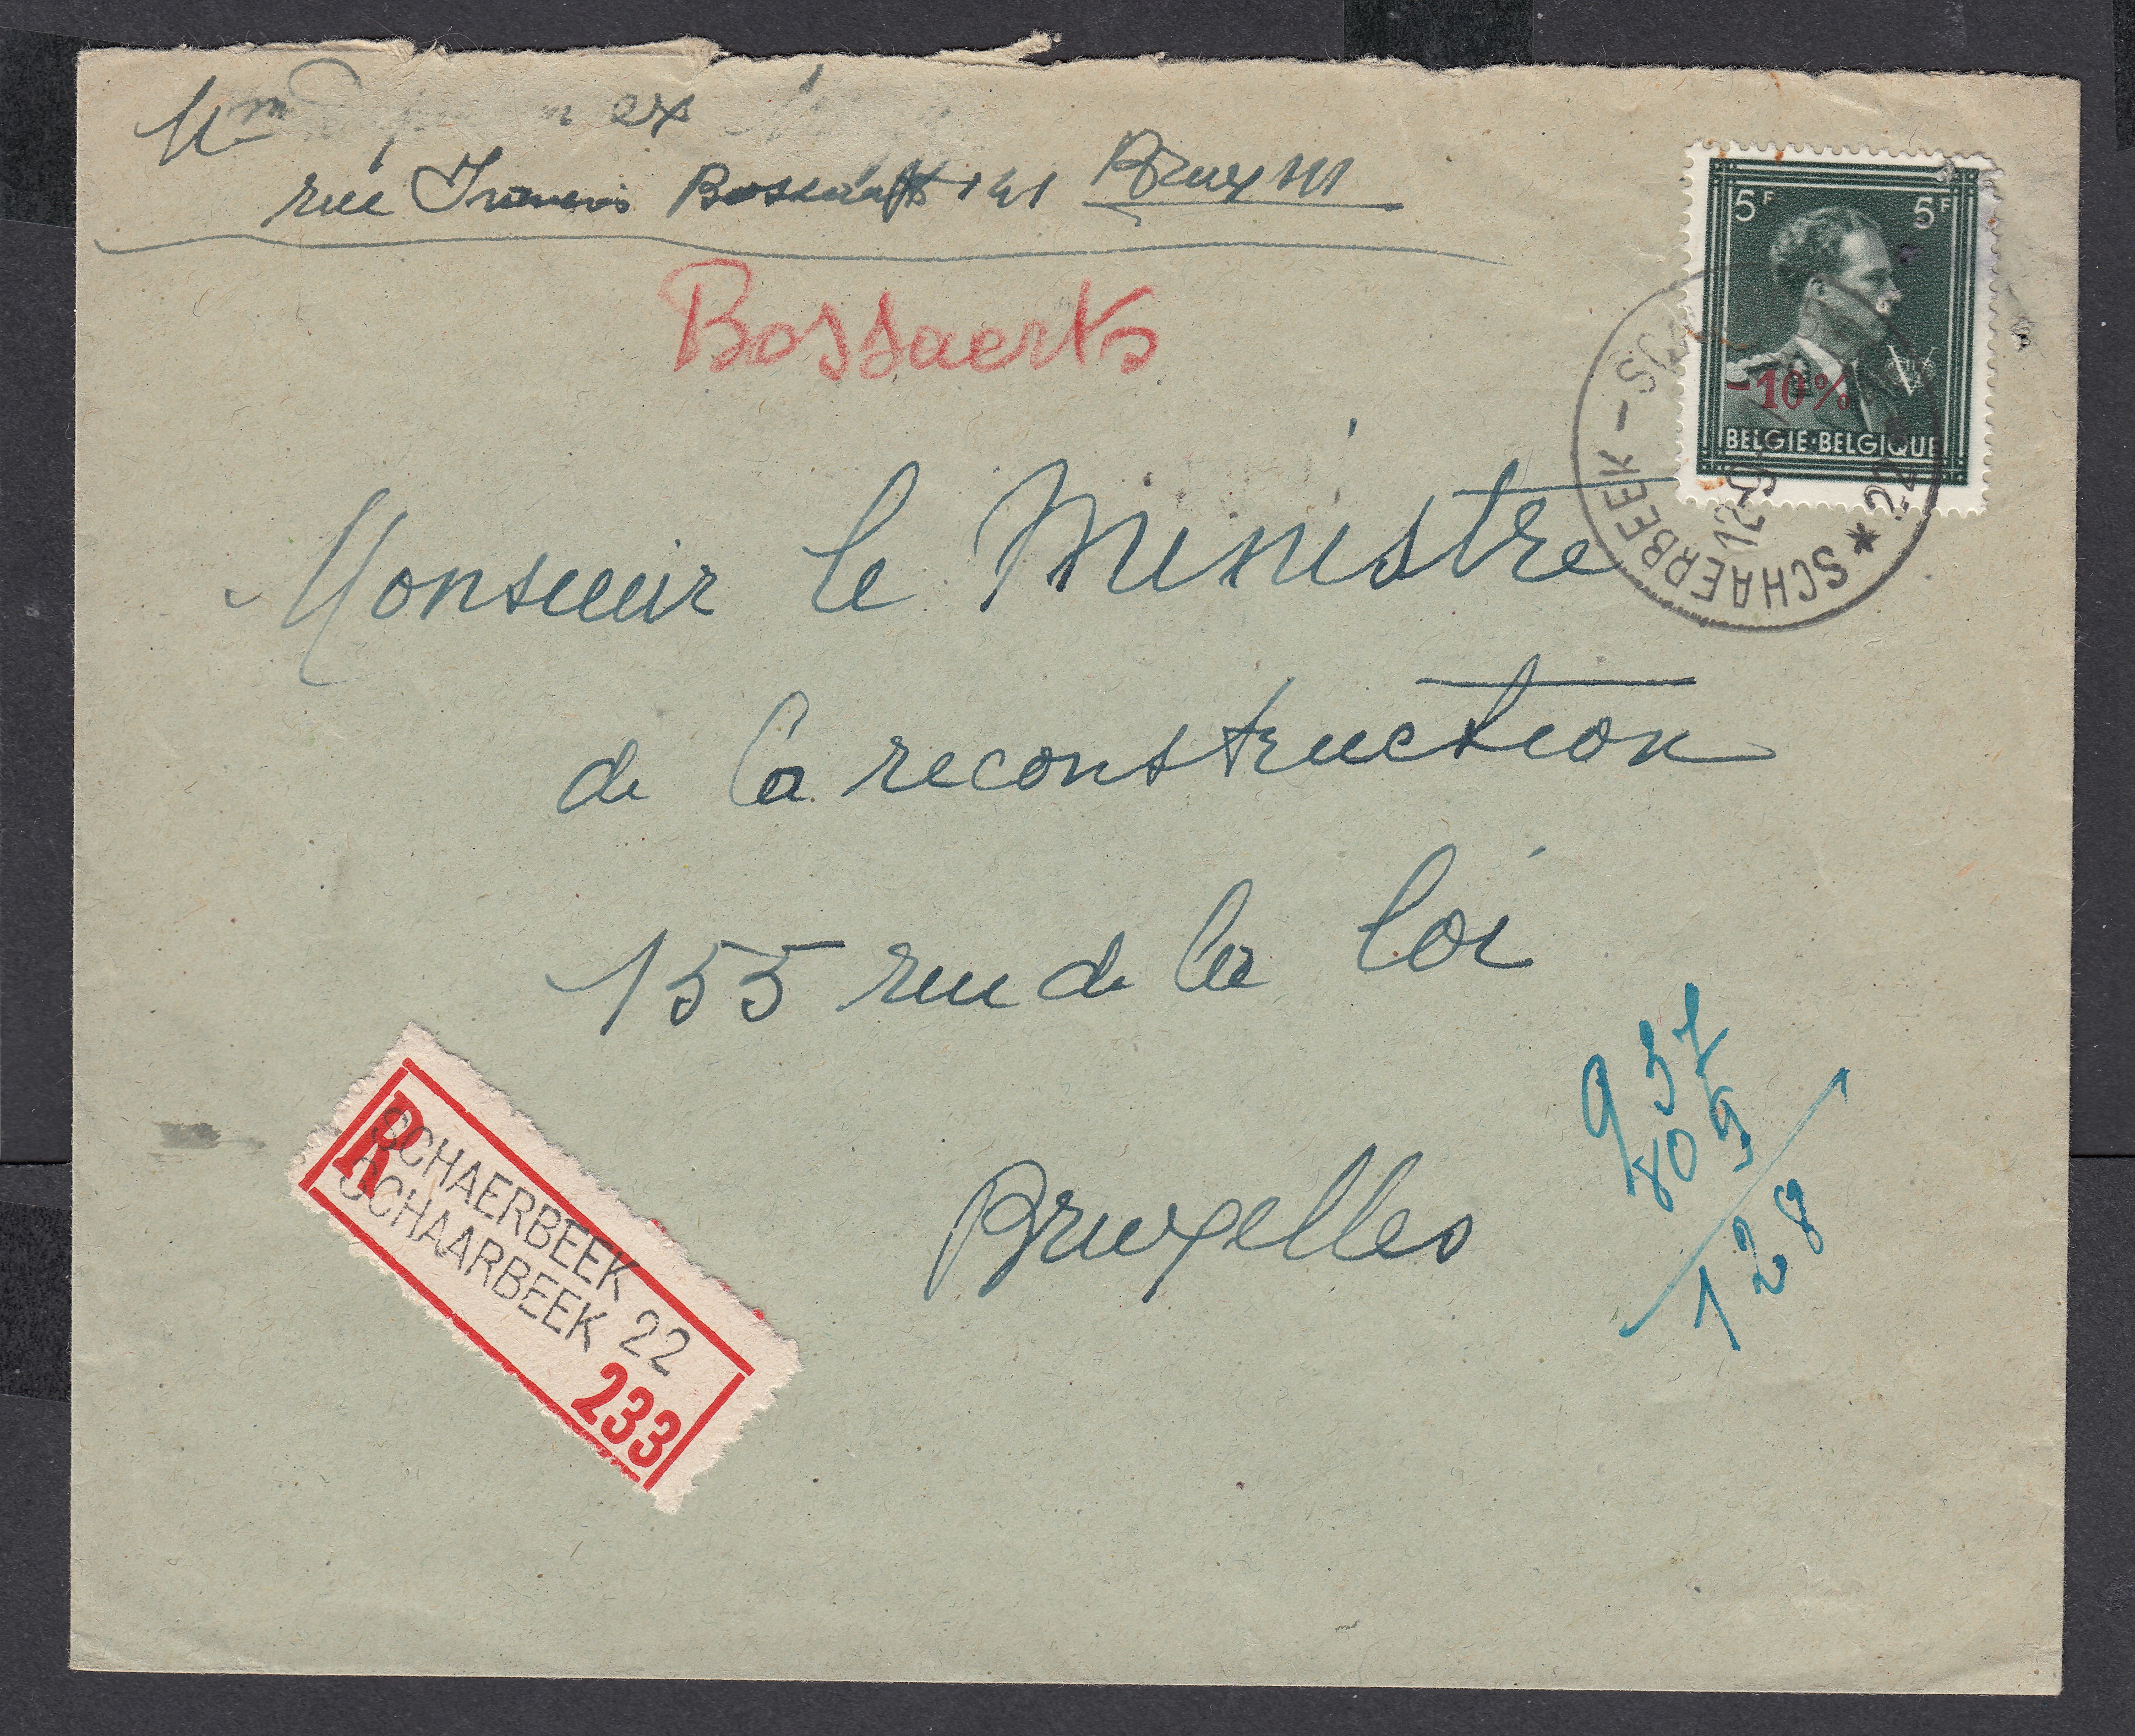 Mme ex
rue Francis Bossaerts 141 Brux III
Bossaerts
5F 5F
-10%
V
BELGIE·BELGIQUE
* SCHAERBEEK -
12-9
22
Monsieur le Ministre
de la reconstruction
155 rue de la loi
Bruxelles
937
809
128
R
SCHAERBEEK 22
SCHAARBEEK
233